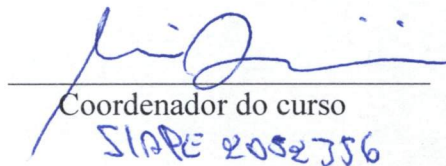 Coordenador do curso
SIAPE 2052356